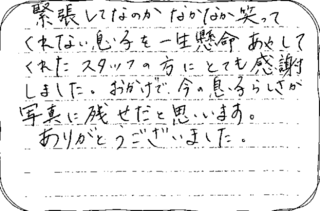 緊張してなのか なかなか笑って
くれない息子を一生懸命 あやして
くれた スタッフの方に とても感謝
しました。おかげで、今の息子らしさが
写真に残せたと思います。
ありがとうございました。